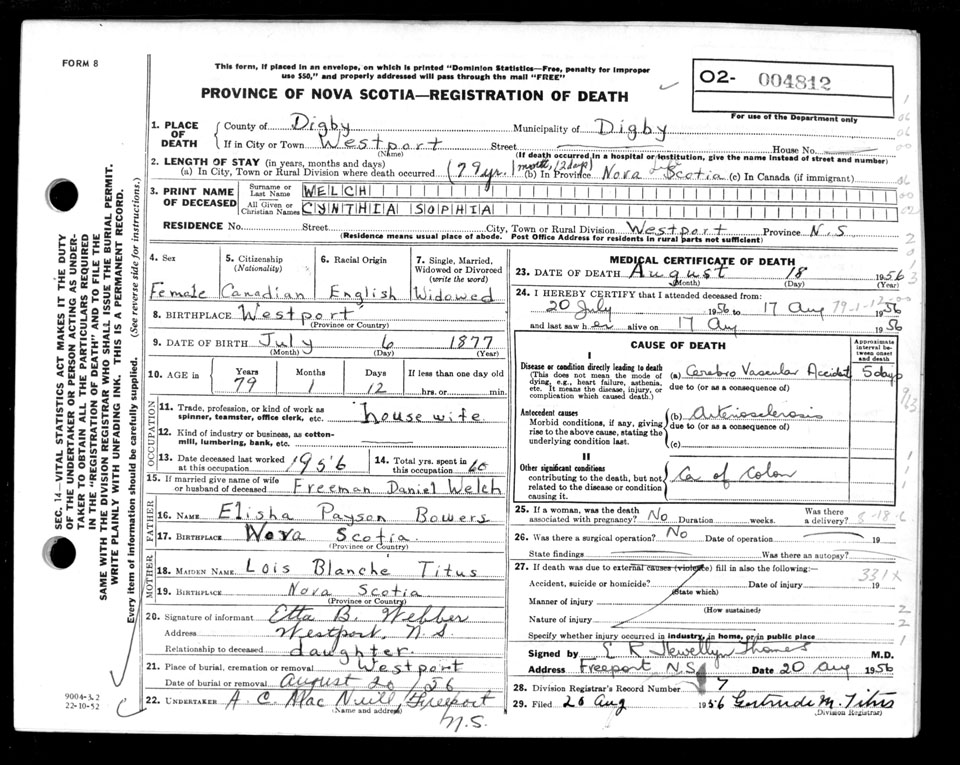 FORM 8
This form, if placed in an envelope, on which is printed "Dominion Statistics—Free, penalty for improper
use $50," and properly addressed will pass through the mail "FREE"
O2- 004812
For use of the Department only
PROVINCE OF NOVA SCOTIA—REGISTRATION OF DEATH
1. PLACE OF DEATH
County of Digby Municipality of Digby
If in City or Town Westport Street House No.
(Name) (If death occurred in a hospital or institution, give the name instead of street and number)
2. LENGTH OF STAY (in years, months and days)
(a) In City, Town or Rural Division where death occurred (79 yr. 1 month, 12 days) (b) In Province Nova Scotia (c) In Canada (if immigrant)
3. PRINT NAME OF DECEASED
Surname or Last Name WELCH
All Given or Christian Names CYNTHIA SOPHIA
RESIDENCE No. Street City, Town or Rural Division Westport Province N.S
(Residence means usual place of abode. Post Office Address for residents in rural parts not sufficient)
4. Sex
Female
5. Citizenship
(Nationality)
Canadian
6. Racial Origin
English
7. Single, Married, Widowed or Divorced
(write the word)
Widowed
8. BIRTHPLACE Westport
(Province or Country)
9. DATE OF BIRTH July 6 1877
(Month) (Day) (Year)
10. AGE in Years Months Days If less than one day old
79 1 12 hrs. or min.
OCCUPATION
11. Trade, profession, or kind of work as
spinner, teamster, office clerk, etc. house wife
12. Kind of industry or business, as cotton-
mill, lumbering, bank, etc.
13. Date deceased last worked
at this occupation 1956
14. Total yrs. spent in
this occupation 60
15. If married give name of wife
or husband of deceased Freeman Daniel Welch
FATHER
16. NAME Elisha Payson Bowers
17. BIRTHPLACE Nova Scotia
(Province or Country)
MOTHER
18. MAIDEN NAME Lois Blanche Titus
19. BIRTHPLACE Nova Scotia
(Province or Country)
20. Signature of informant Etta B. Webber
Address Westport, N.S
Relationship to deceased daughter
21. Place of burial, cremation or removal Westport
Date of burial or removal August 20/56
22. UNDERTAKER A. C. Mac Neill, Freeport
(Name and address) N.S.
MEDICAL CERTIFICATE OF DEATH
23. DATE OF DEATH August 18 1956
(Month) (Day) (Year)
24. I HEREBY CERTIFY that I attended deceased from:
20 July 1956 to 17 Aug 1956
79-1-12
and last saw her alive on 17 Aug 1956
CAUSE OF DEATH
Approximate interval between onset and death
I
Disease or condition directly leading to death
(This does not mean the mode of
dying, e.g., heart failure, asthenia,
etc. It means the disease, injury, or
complication which caused death.)
(a) Cerebro Vascular Accident 5 days
due to (or as a consequence of)
Antecedent causes
Morbid conditions, if any, giving
rise to the above cause, stating the
underlying condition last.
(b) Arteriosclerosis
due to (or as a consequence of)
(c)
II
Other significant conditions
contributing to the death, but not
related to the disease or condition
causing it.
Ca of Colon
25. If a woman, was the death
associated with pregnancy? No Duration weeks. Was there
a delivery?
26. Was there a surgical operation? No Date of operation 19
State findings Was there an autopsy?
27. If death was due to external causes (violence) fill in also the following:—
331X
Accident, suicide or homicide? Date of injury 19
(State which)
Manner of injury
(How sustained)
Nature of injury
Specify whether injury occurred in industry, in home, or in public place
Signed by E R Llewellyn Thomas M.D.
Address Freeport N.S. Date 20 Aug 1956
28. Division Registrar's Record Number 7
29. Filed 20 Aug 1956 Gertrude M. Titus
(Division Registrar)
SEC. 14—VITAL STATISTICS ACT MAKES IT THE DUTY
OF THE UNDERTAKER OR PERSON ACTING AS UNDER-
TAKER TO OBTAIN ALL THE PARTICULARS REQUIRED
IN THE "REGISTRATION OF DEATH" AND TO FILE THE
SAME WITH THE DIVISION REGISTRAR WHO SHALL ISSUE THE BURIAL PERMIT.
WRITE PLAINLY WITH UNFADING INK. THIS IS A PERMANENT RECORD.
Every item of information should be carefully supplied. (See reverse side for instructions.)
9004-3.2
22-10-52